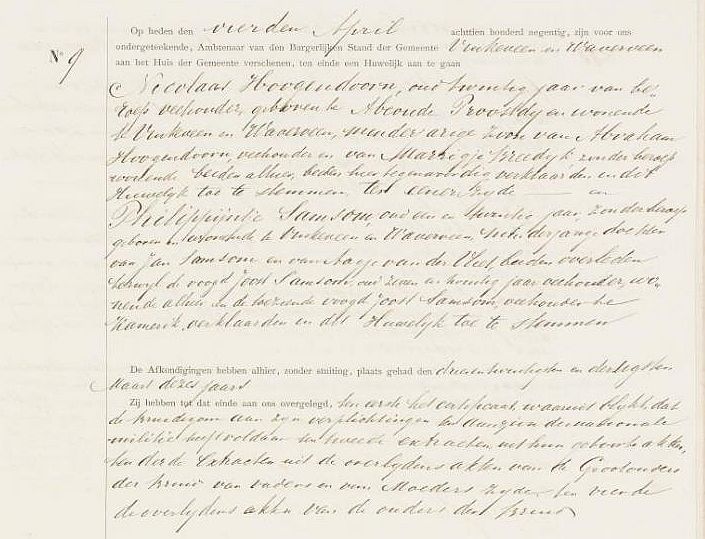 Op heden den vierden April achttien honderd negentig, zijn voor ons
ondergeteekende, Ambtenaar van den Burgerlijken Stand der Gemeente Vinkeveen en Waverveen
No 9 aan het Huis der Gemeente verschenen, ten einde een Huwelijk aan te gaan
Nicolaas Hoogendoorn, oud twintig jaar van be
roep veehouder, geboren te Abcoude Proostdy en wonende
te Vinkeveen en Waverveen, minderjarige zoon van Abraham
Hoogendoorn, veehouder en van Marrigje Breedijk zonder beroep
wonende beiden alhier, beiden hier tegenwoordig verklaarden in dit
Huwelijk toe te stemmen, ter eener zyde en
Philippijntje Samsom, oud een en twintig jaar, zonder beroep
geboren en wonende te Vinkeveen en Waverveen, minderjarige dochter
van Jan Samsom en van Aagje van der Vliet, beiden overleden
terwyl de voogd Joost Samsom, oud zeven en twintig jaar veehouder, wo-
nende alhier en de toeziende voogd Joost Samsom, veehouder te
Kamerik, verklaarden in dit Huwelyk toe te stemmen
De Afkondigingen hebben alhier, zonder stuiting, plaats gehad den drieentwintigsten en dertigsten
Maart dezes jaars
Zij hebben tot dat einde aan ons overgelegd, ten eerste het certificaat, waaruit blykt, dat
de bruidegom aan zyn verplichtingen ten aanzien der nationale
militie heeft voldaan ten tweede extracten uit hun geboorte akten,
ten derde Extracten uit de overlydens akten van de Grootouders
der bruid van vaders en van Moeders zyde, ten vierde
de overlydens akten van de ouders der bruid